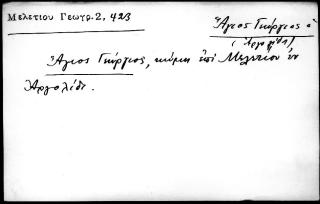 Μελετίου Γεωγρ.2, 423
Ἅγιος Γεώργιος ὁ
(Ἀργολίδι)
Ἅγιος Γεώργιος, κώμη ἐπὶ Μελετίου ἐν
Ἀργολίδι.